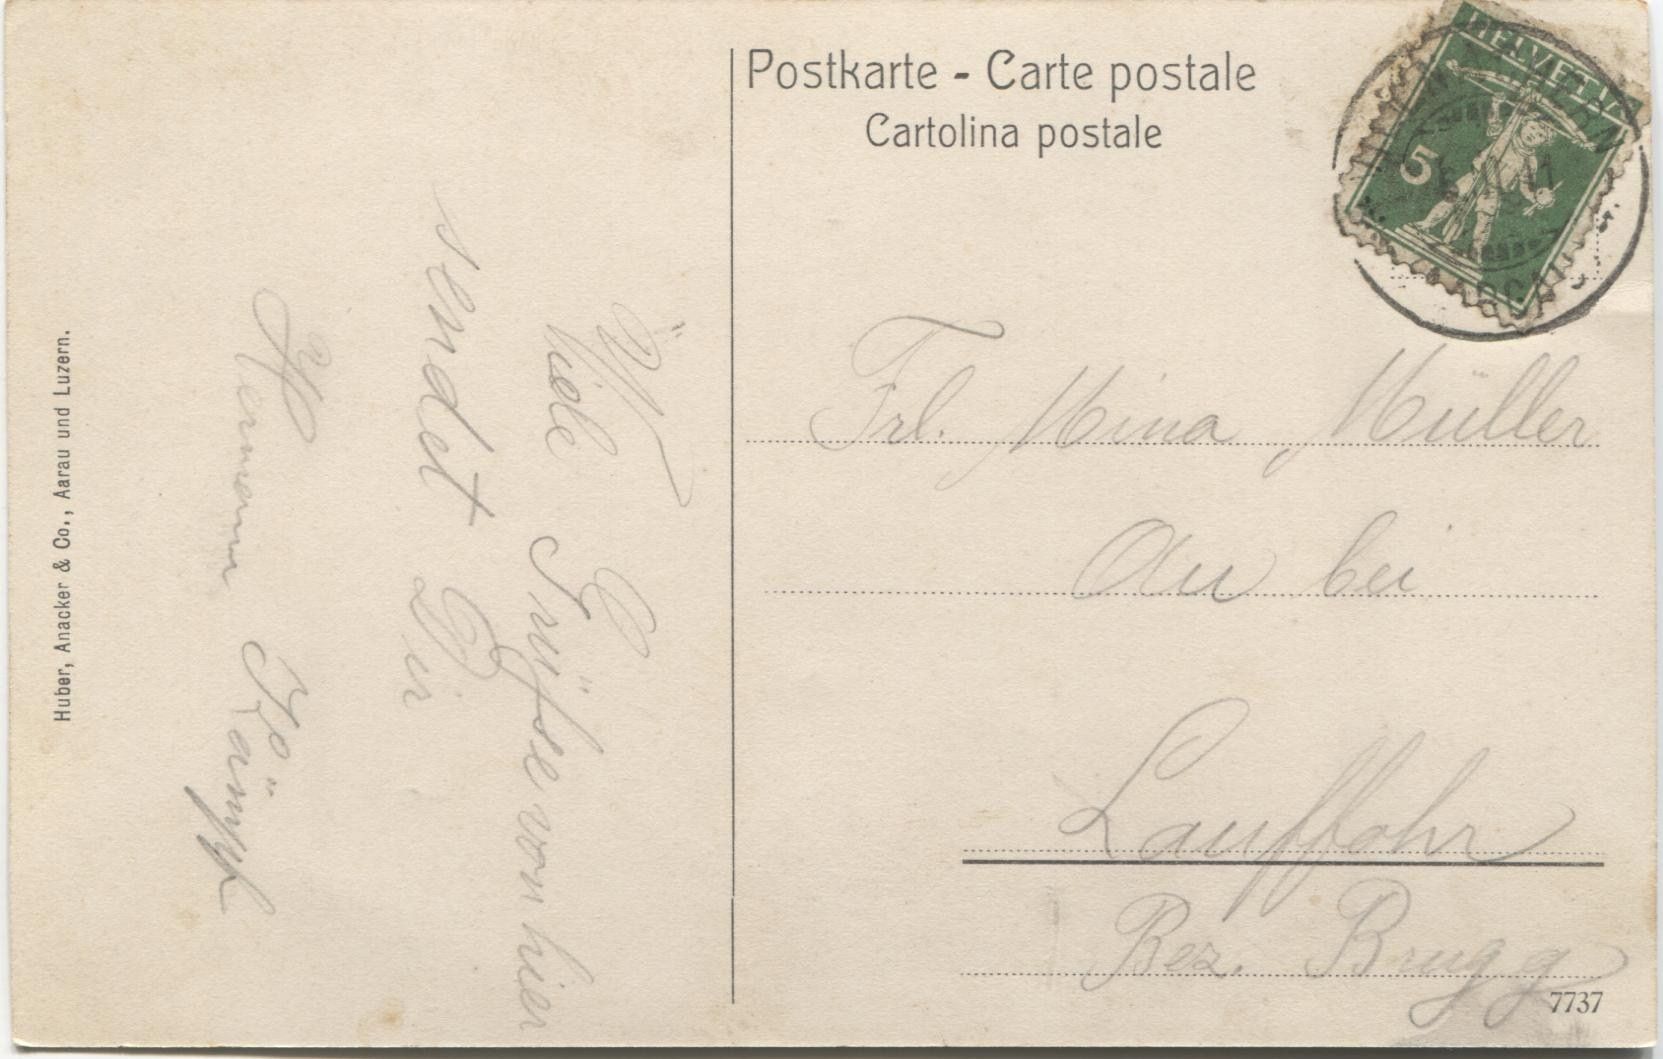 Postkarte - Carte postale
Cartolina postale
HELVETIA
5
Viele Grüße von hier
sendet Dir
Hermann Kämpf
Frl. Mina Müller
Au bei
Lauffohr
Bez. Brugg
7737
Huber, Anacker & Co., Aarau und Luzern.